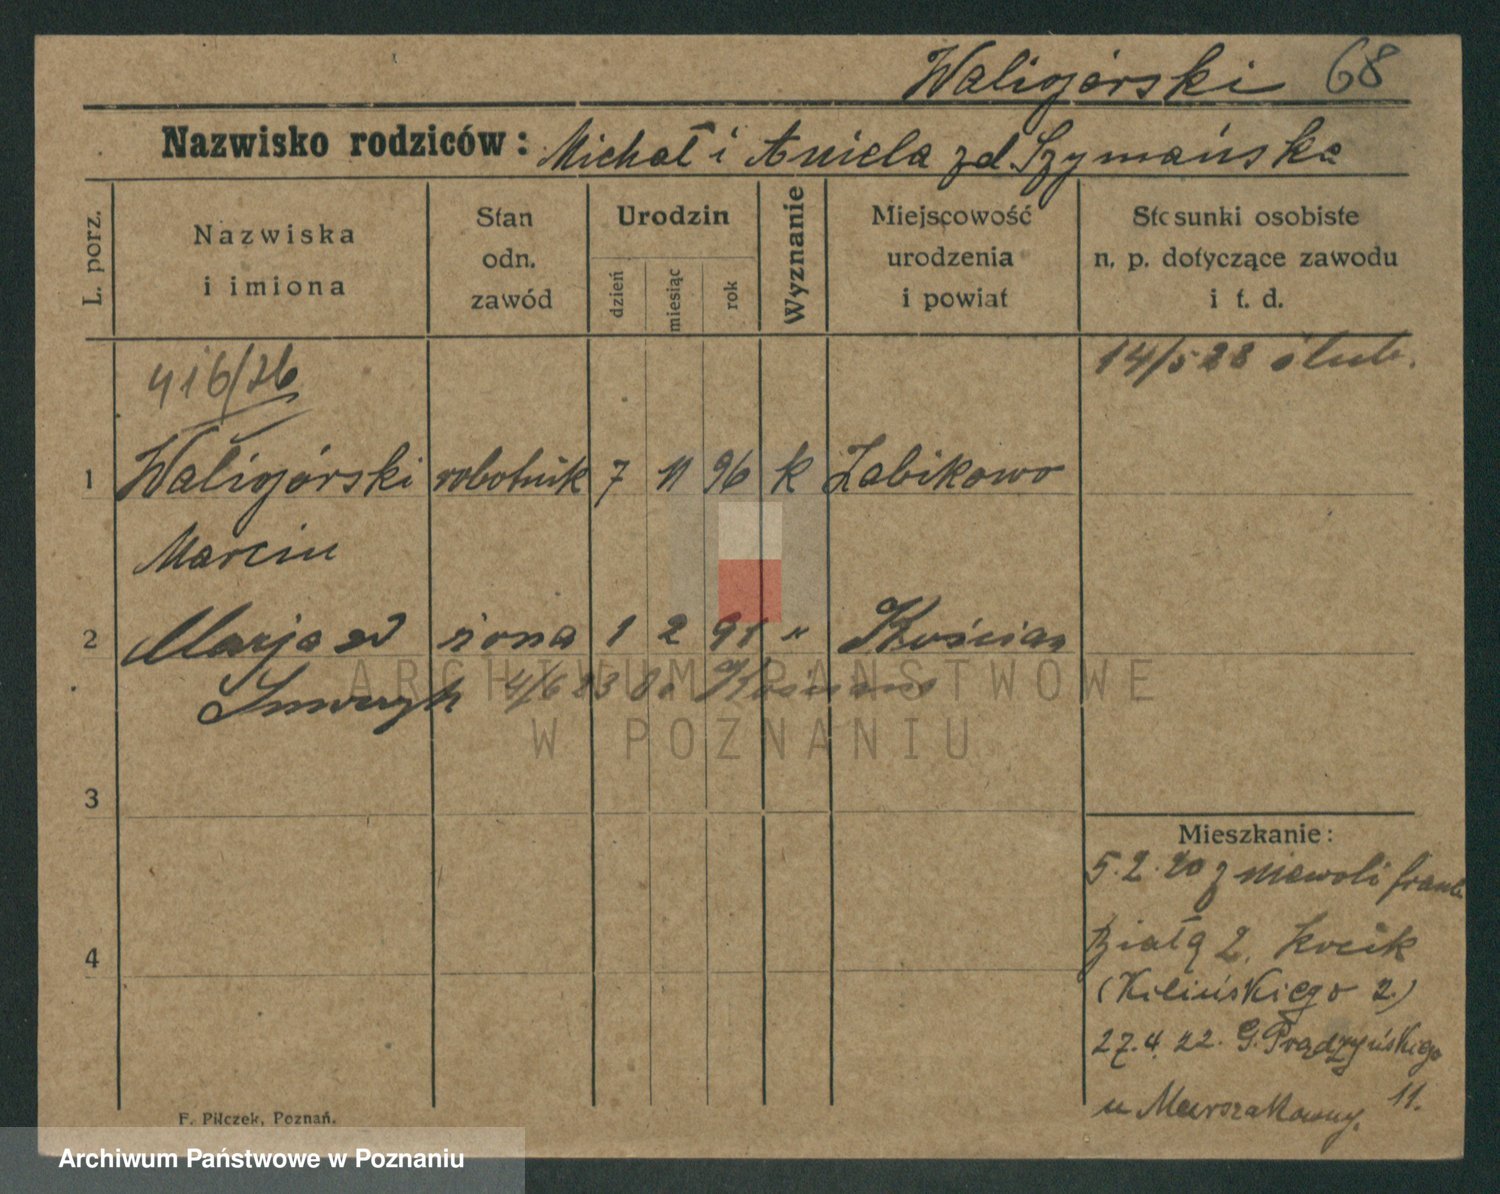 Waligórski 68
Nazwisko rodziców: Michał i Aniela zd. Szymańska
L. porz.
Nazwiska
i imiona
Stan
odn.
zawód
Urodzin
dzień
miesiąc
rok
Wyznanie
Miejscowość
urodzenia
i powiat
Stosunki osobiste
n. p. dotyczące zawodu
i t. d.
416/26
14/5 28 ślub.
1 Waligórski robotnik 7 11 96 k Żabikowo
Marcin
2 Marja zd żona 1 2 91 " Kościan
4/6 23 do Kościana
3
4
Mieszkanie:
5.2.20 z niewoli franc.
2. Kocik
(Kilińskiego 2.)
27.4.22. G. Prądzyńskiego
11.
u
F. Pilczek, Poznań.
ARCHIWUM PAŃSTWOWE
W POZNANIU
Archiwum Państwowe w Poznaniu